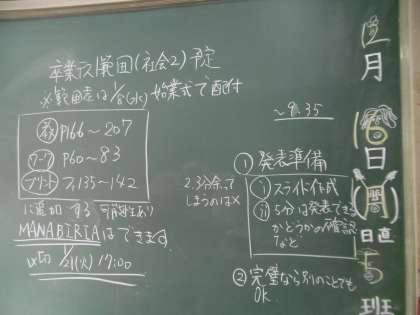 卒業テスト範囲(社会2)予定
※範囲表は1/8(水)始業式で配付
教 P166〜207
ワーク P60〜83
プリント フ.135〜142
に追加する可能性あり
MANABIRIAはできます.
〆切 1/21(火) 17:00
〜9:35
① 発表準備
2.3分余って
しまうのは×
i) スライド作成
ii) 5分は発表できる
かどうかの確認
など
② 完璧なら別のことでも
OK.
月
16
日
日直
5
班